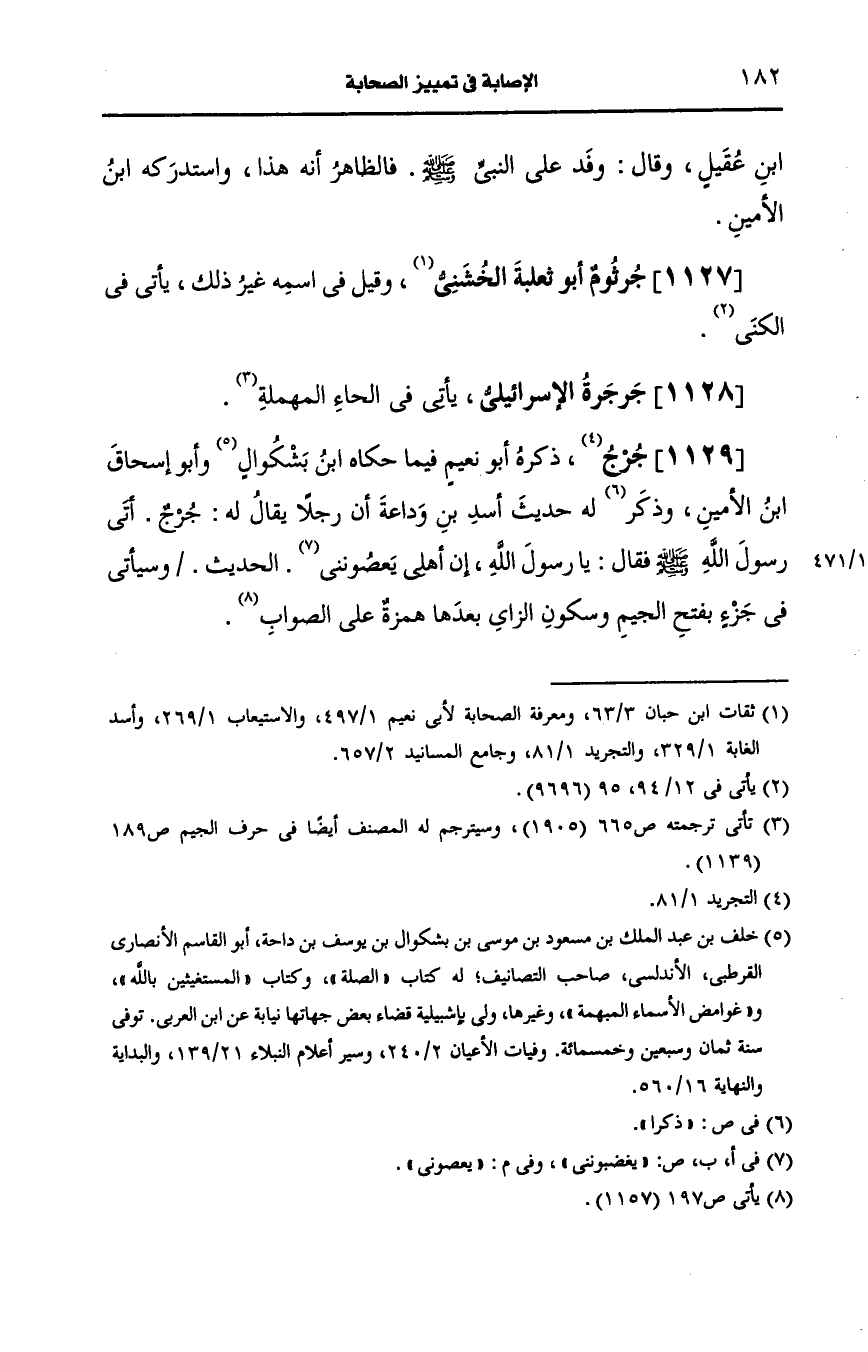 ١٨٢ الإصابة فى تمييز الصحابة
ابنِ عُقَيلٍ ، وقال : وفَد على النبىِّ ﷺ . فالظاهرُ أنه هذا ، واستدرَكه ابنُ
الأمينِ .
[١١٢٧] جُرثُومٌ أبو ثعلبةَ الخُشَنِىُّ(١) ، وقيل فى اسمِه غيرُ ذلك ، يأتى فى
الكنَى(٢) .
[١١٢٨] جَرجَرةُ الإسرائيلىُّ ، يأتِى فى الحاءِ المهملةِ(٣) .
[١١٢٩] جُرْجٌ(٤) ، ذكرهُ أبو نعيمٍ فيما حكاه ابنُ بَشْكُوالٍ(٥) وأبو إسحاقَ
ابنُ الأمينِ ، وذكَر(٦) له حديثَ أسدِ بنِ وَداعةَ أن رجلًا يقالُ له : جُرْجٌ . أتَى
رسولَ اللَّهِ ﷺ فقال : يا رسولَ اللَّهِ ، إن أهلِى يَعصُوننى(٧) . الحديث . / وسيأتى ٤٧١/١
فى جَزْءٍ بفتحِ الجيمِ وسكونِ الزاي بعدَها همزةٌ على الصوابِ(٨) .
(١) ثقات ابن حبان ٦٣/٣، ومعرفة الصحابة لأبى نعيم ٤٩٧/١، والاستيعاب ٢٦٩/١، وأسد
الغابة ٣٢٩/١، والتجريد ٨١/١، وجامع المسانيد ٦٥٧/٢.
(٢) يأتى فى ١٢/ ٩٤، ٩٥ (٩٦٩٦) .
(٣) تأتى ترجمته ص٦٦٥ (١٩٠٥) ، وسيترجم له المصنف أيضًا فى حرف الجيم ص١٨٩
(١١٣٩) .
(٤) التجريد ٨١/١.
(٥) خلف بن عبد الملك بن مسعود بن موسى بن بشكوال بن يوسف بن داحة، أبو القاسم الأنصارى
القرطبى، الأندلسى، صاحب التصانيف؛ له كتاب «الصلة»، وكتاب «المستغيثين باللَّه»،
و«غوامض الأسماء المبهمة»، وغيرها، ولى بإشبيلية قضاء بعض جهاتها نيابة عن ابن العربى. توفى
سنة ثمان وسبعين وخمسمائة. وفيات الأعيان ٢٤٠/٢، وسير أعلام النبلاء ١٣٩/٢١، والبداية
والنهاية ٥٦٠/١٦.
(٦) فى ص : «ذكرا».
(٧) فى أ، ب، ص: «يغضبوننى» ، وفى م : «يعصونى» .
(٨) يأتى ص١٩٧ (١١٥٧) .